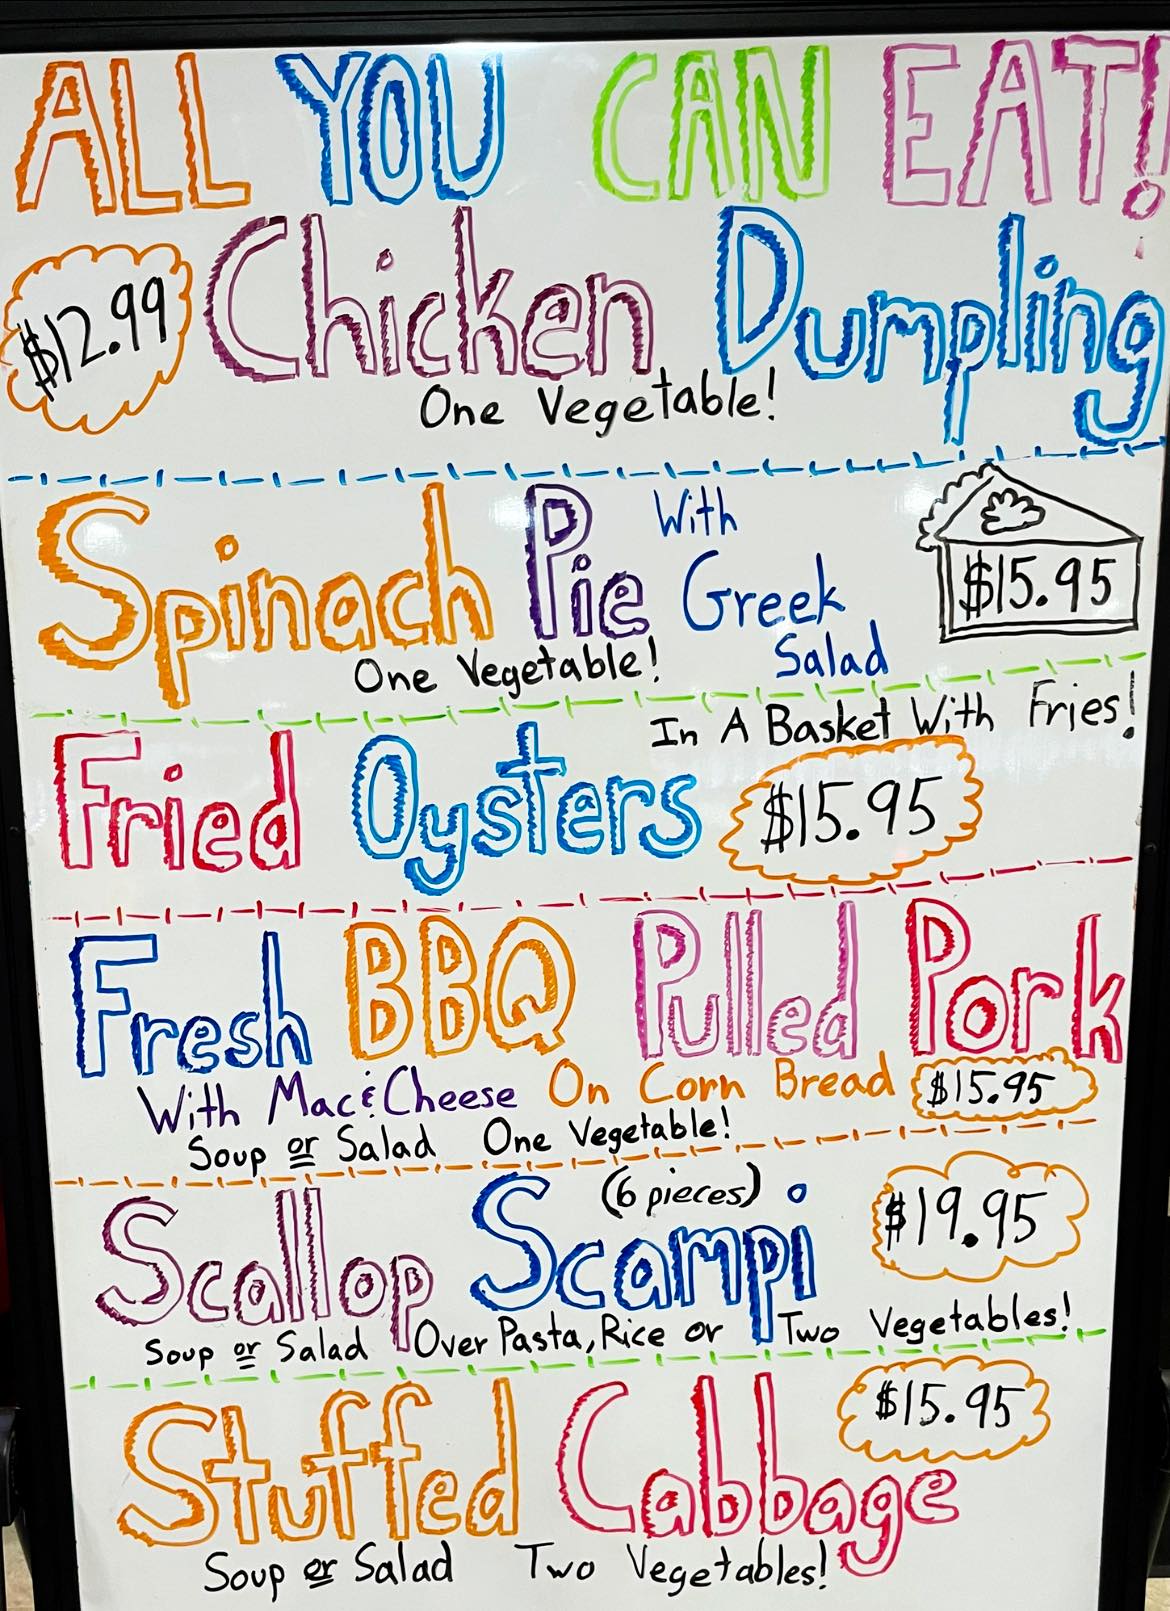 ALL YOU CAN EAT!
$12.99 Chicken Dumpling
One Vegetable!
Spinach Pie With Greek Salad $15.95
One Vegetable!
In A Basket With Fries!
Fried Oysters $15.95
Fresh BBQ Pulled Pork
With Mac & Cheese On Corn Bread $15.95
Soup or Salad One Vegetable!
Scallop Scampi (6 pieces) $19.95
Soup or Salad Over Pasta, Rice or Two Vegetables!
Stuffed Cabbage $15.95
Soup or Salad Two Vegetables!